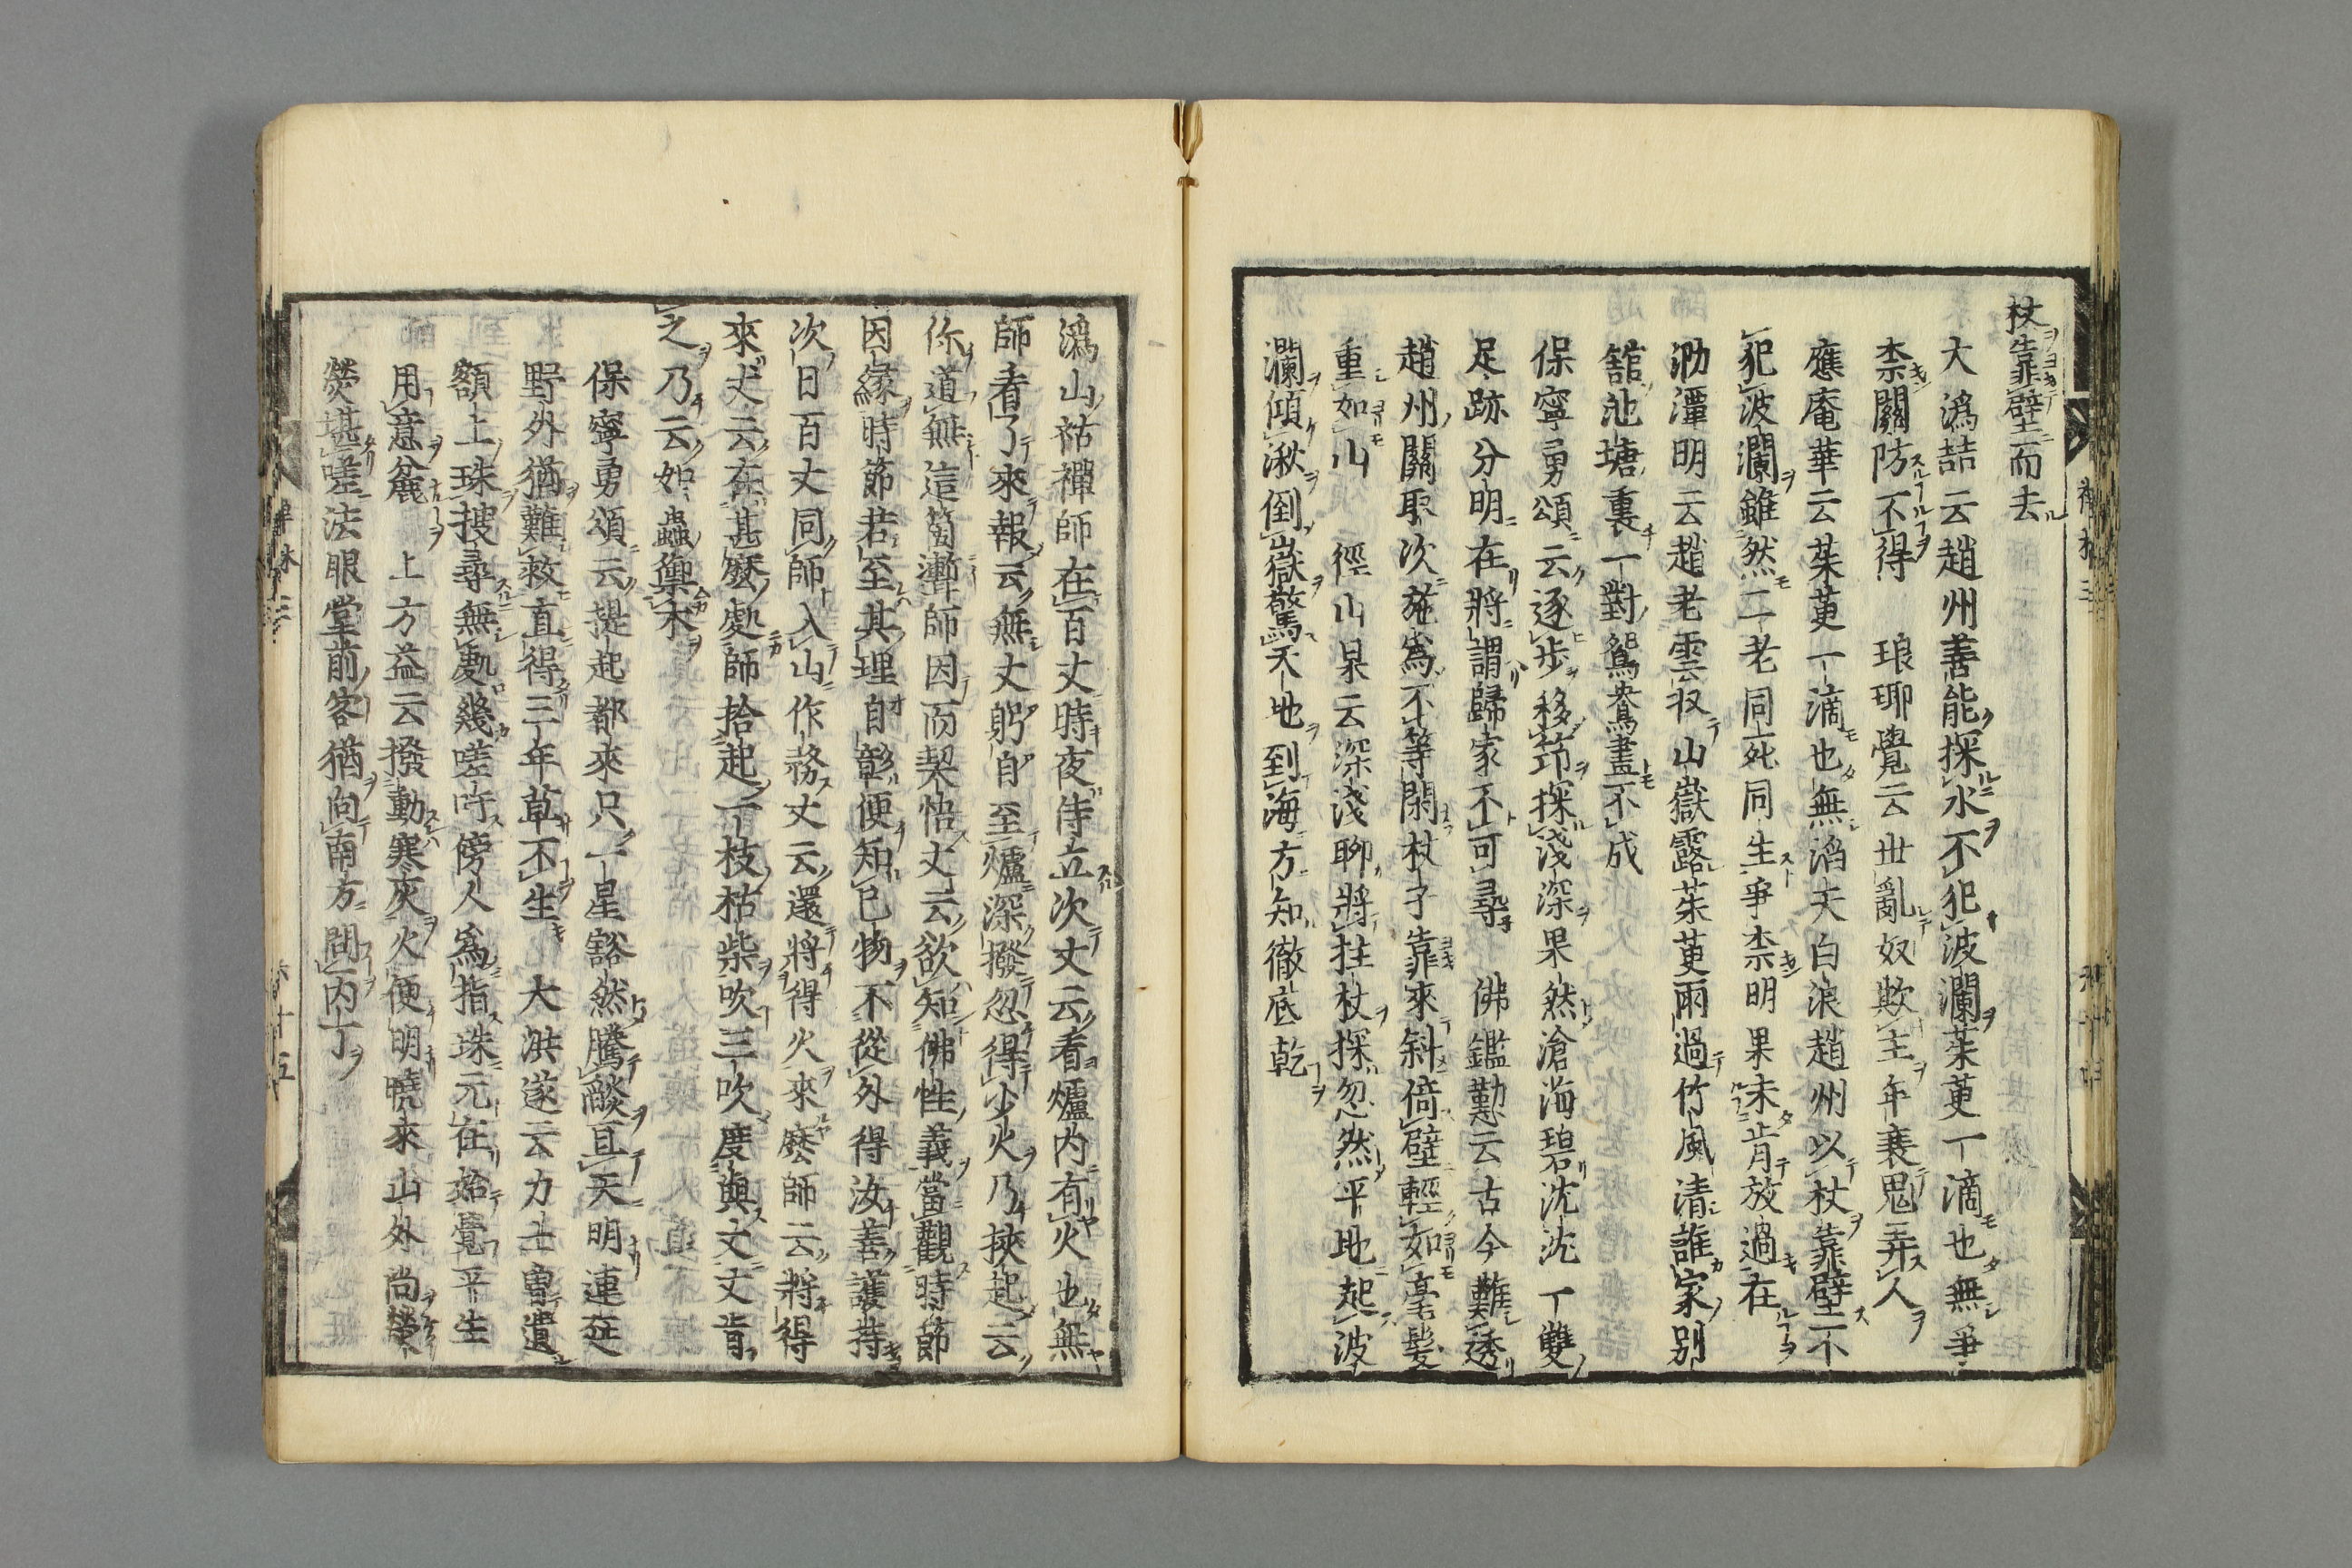 杖靠壁而去
大溈喆云趙州善能探水不犯波瀾茱萸一滴也無爭
柰關防不得　琅琊覺云世亂奴欺主年衰鬼弄人
應庵華云茱萸一滴也無滔天白浪趙州以杖靠壁不
犯波瀾雖然二老同死同生爭柰明果未肯放過在
泐潭明云趙老雲收山嶽露茱萸雨過竹風清誰家別
舘池塘裏一對鴛鴦畫不成
保寧勇頌云逐步移筇探淺深果然滄海碧沈沈一雙
足跡分明在將謂歸家不可尋　佛鑑懃云古今難透
趙州關取次施爲不等閑杖子靠來斜倚壁輕如毫髮
重如山　徑山杲云深淺聊將拄杖探忽然平地起波
瀾傾湫倒嶽驚天地到海方知徹底乾
溈山祐禪師在百丈時夜侍立次丈云看爐内有火也無
師看了來報云無丈躬自至爐深撥忽得少火乃挾起云
你道無這箇漸師因而契悟丈云欲知佛性義當觀時節
因緣時節若至其理自彰便知已物不從外得汝善護持
次日百丈同師入山作務丈云還將得火來麽師云將得
來丈云在甚麽處師拾起一枝枯柴吹三吹度與丈丈肯
之乃云如蟲禦木
保寧勇頌云提起都來只一星豁然騰燄亘天明連延
野外猶難救直得三年草不生　大洪遂云力士曽遺
額上珠搜尋無處幾嗟吁傍人爲指珠元在始覺平生
用意麁　上方益云撥動寒灰火便明曉來山外尚螢
熒堪嗟法眼堂前客猶向南方問丙丁